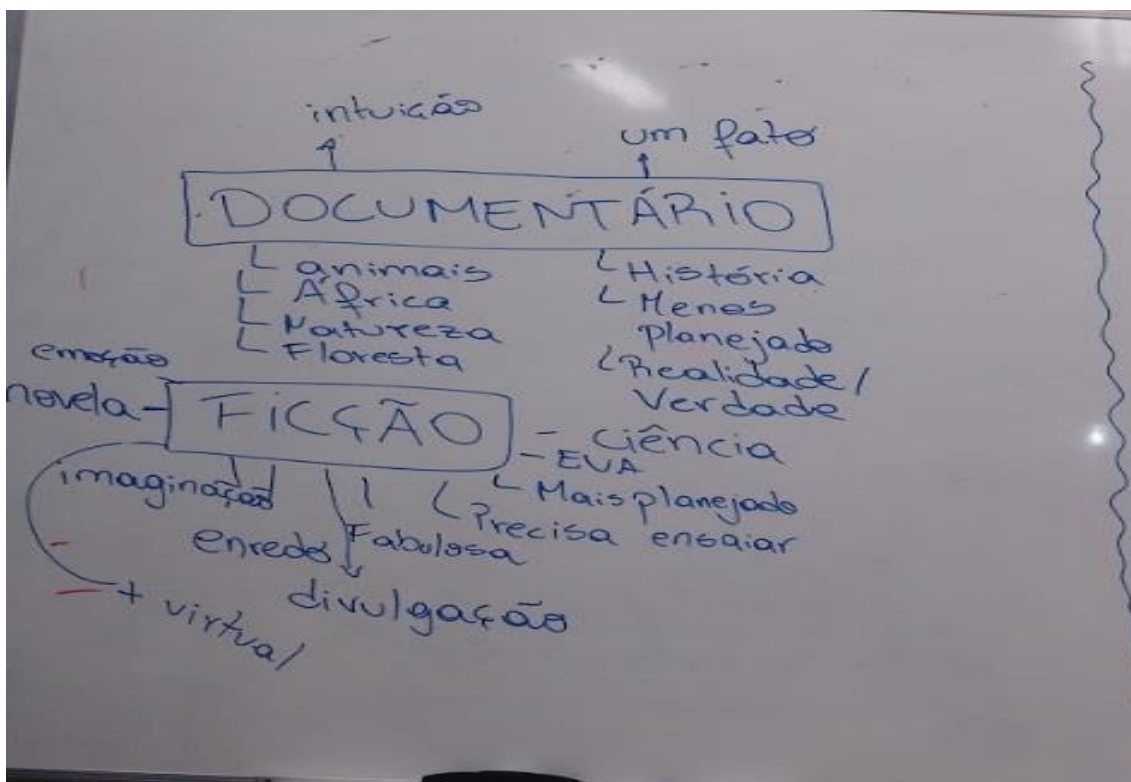 intuição
um fato
DOCUMENTÁRIO
animais
África
Natureza
Floresta
História
Menos
Planejado
Realidade/
Verdade
emoção
novela
FICÇÃO
- Ciência
- EVA
Mais planejado
Precisa ensaiar
imaginação
enredo
Fabulosa
divulgação
+ virtual